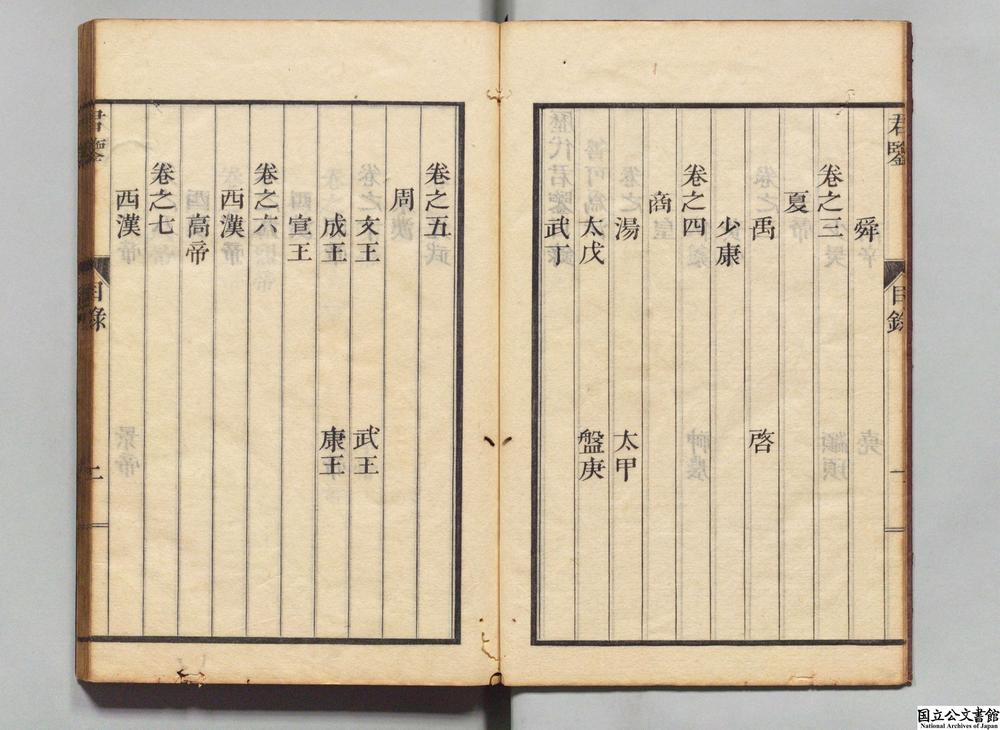 舜
卷之三
夏
禹 啓
少康
卷之四
商
湯 太甲
太戊 盤庚
武丁
君鑒 目錄
卷之五
周
文王 武王
成王 康王
宣王
卷之六
西漢
高帝
卷之七
西漢
君鑒 目錄 二
国立公文書館
National Archives of Japan